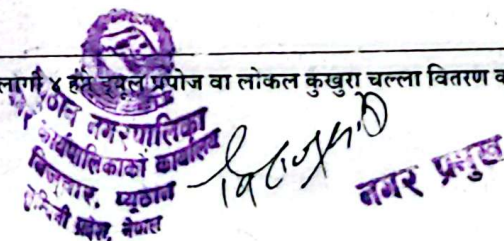 लागी ४ हप्ते ड्यूल प्रपोज वा लोकल कुखुरा चल्ला वितरण
नगरपालिका
नगर कार्यपालिकाको कार्यालय
बिजुवार, प्यूठान
लुम्बिनी प्रदेश, नेपाल
नगर प्रमुख